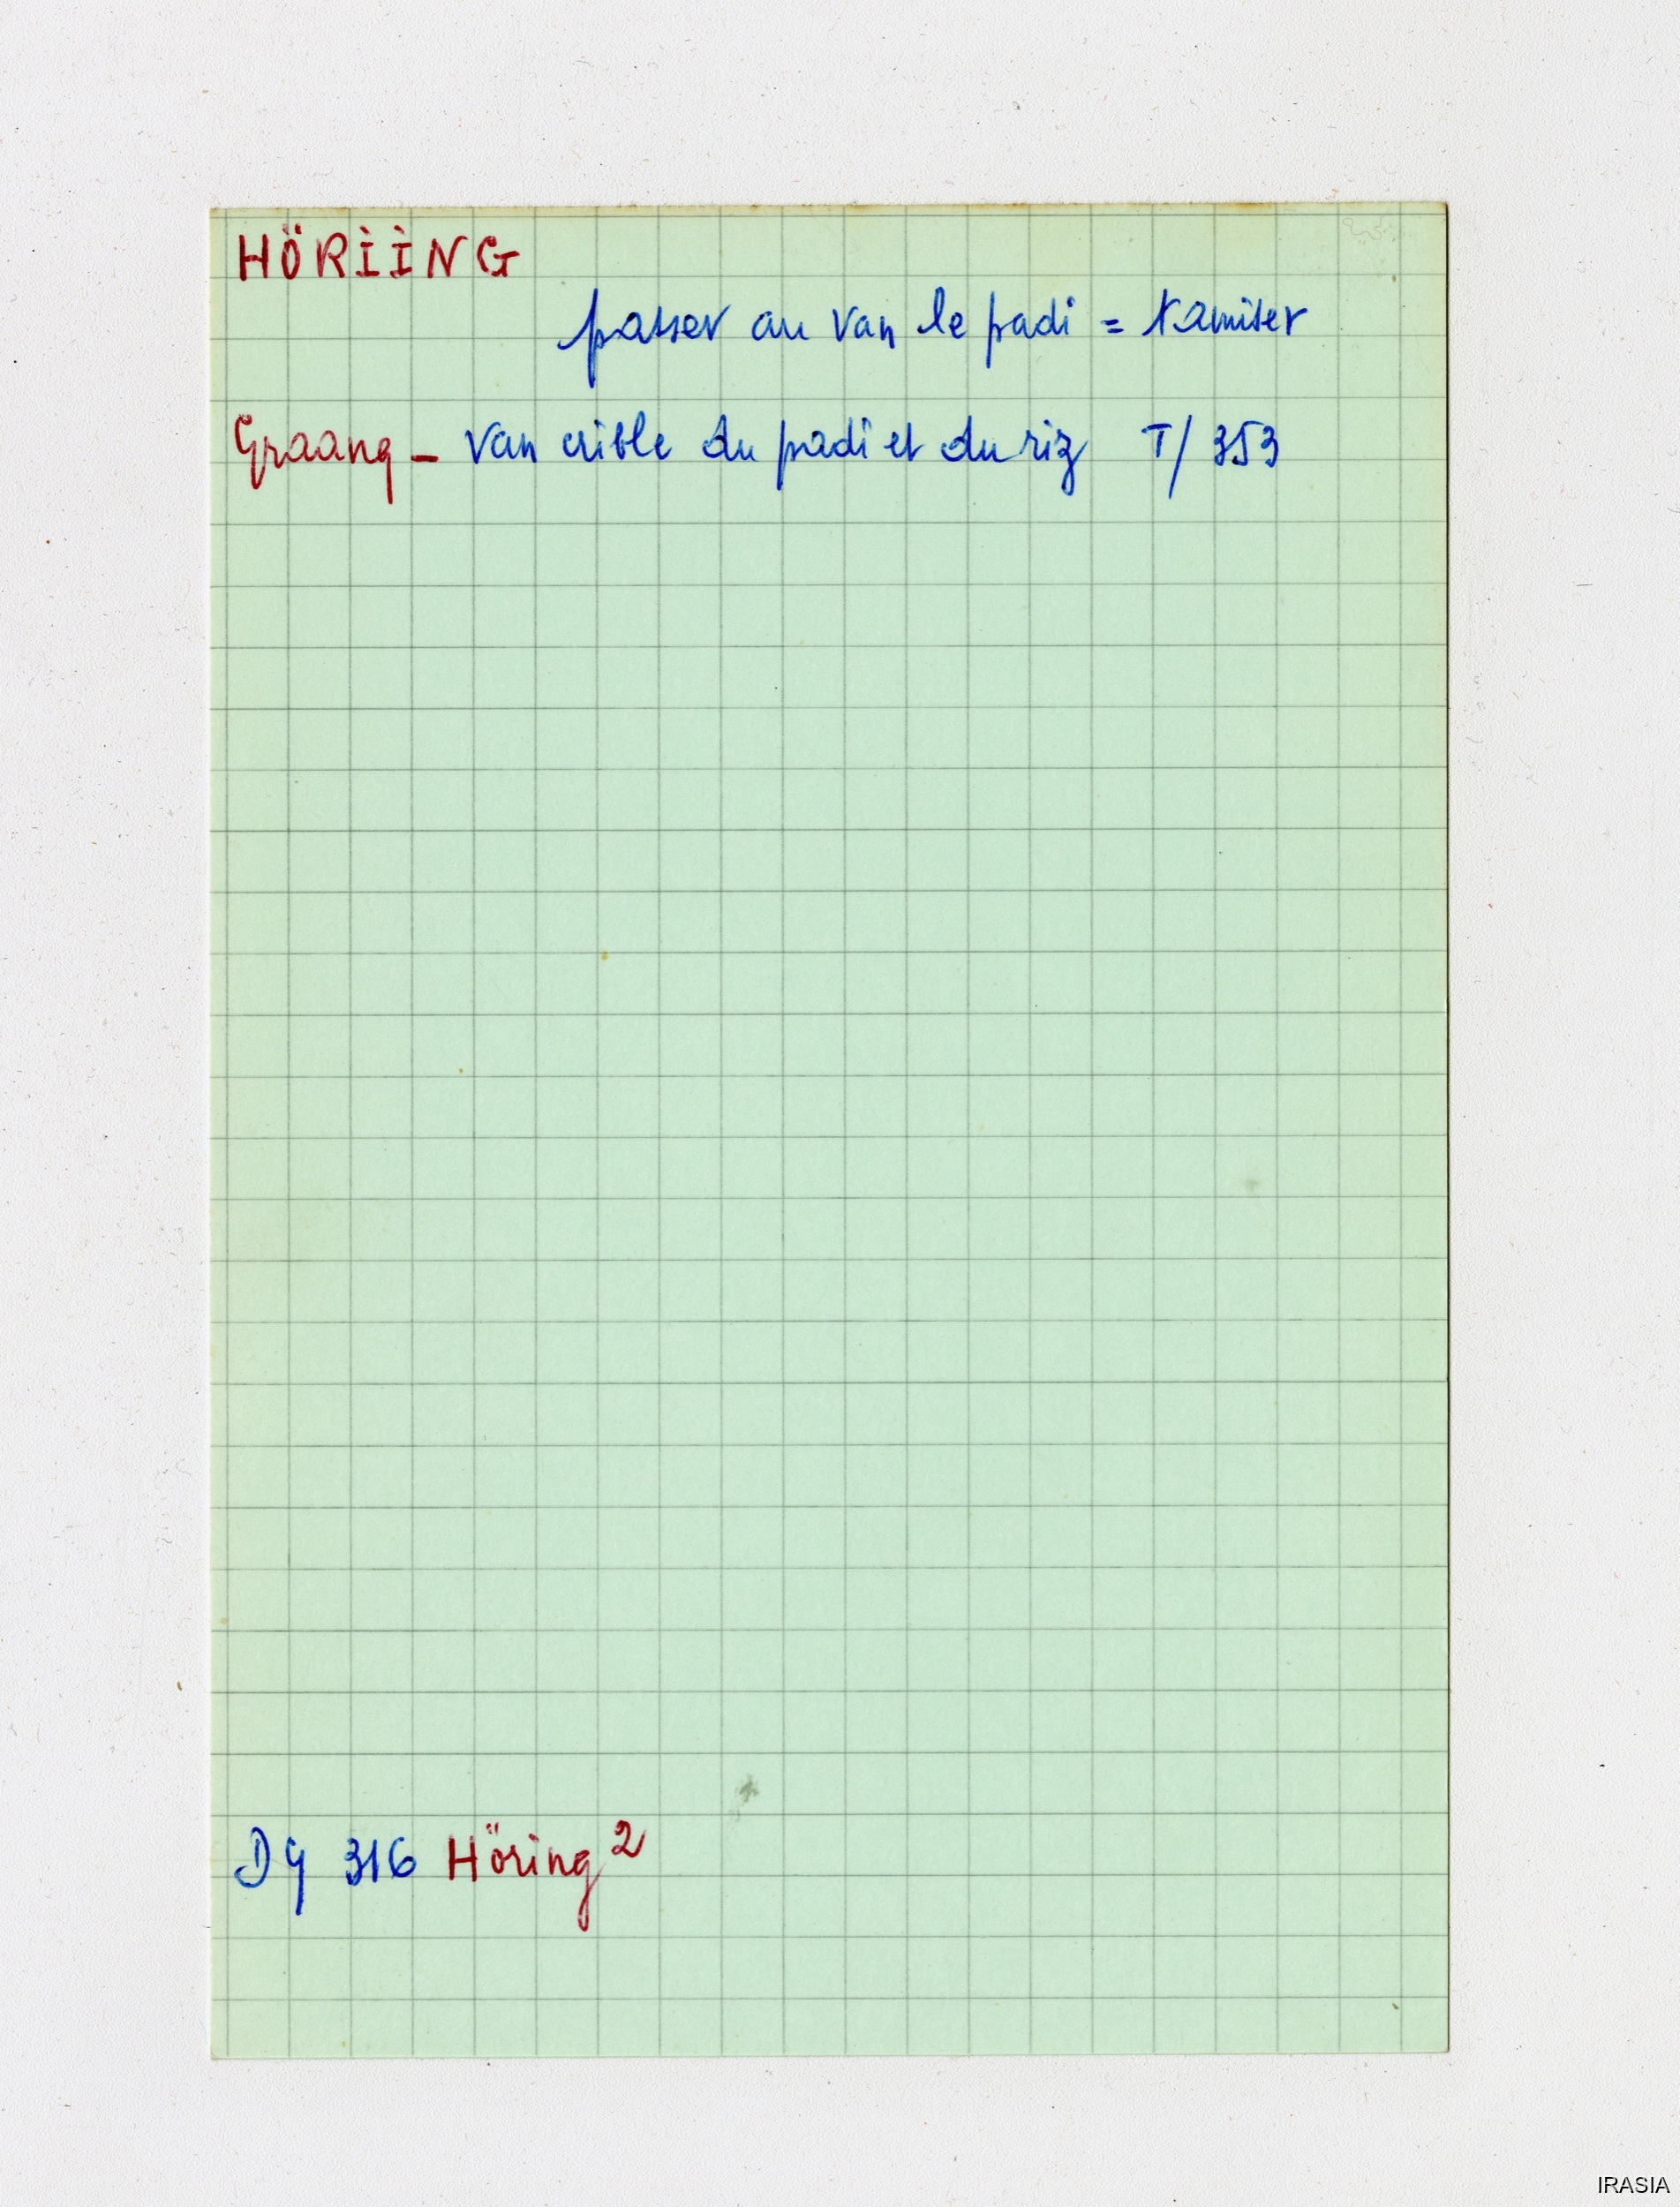 HÖRİİNG
passer au van le padi = tamiser
Graang - Van crible du padi et du riz T/ 353
Dg 316 Höring 2
IRASIA